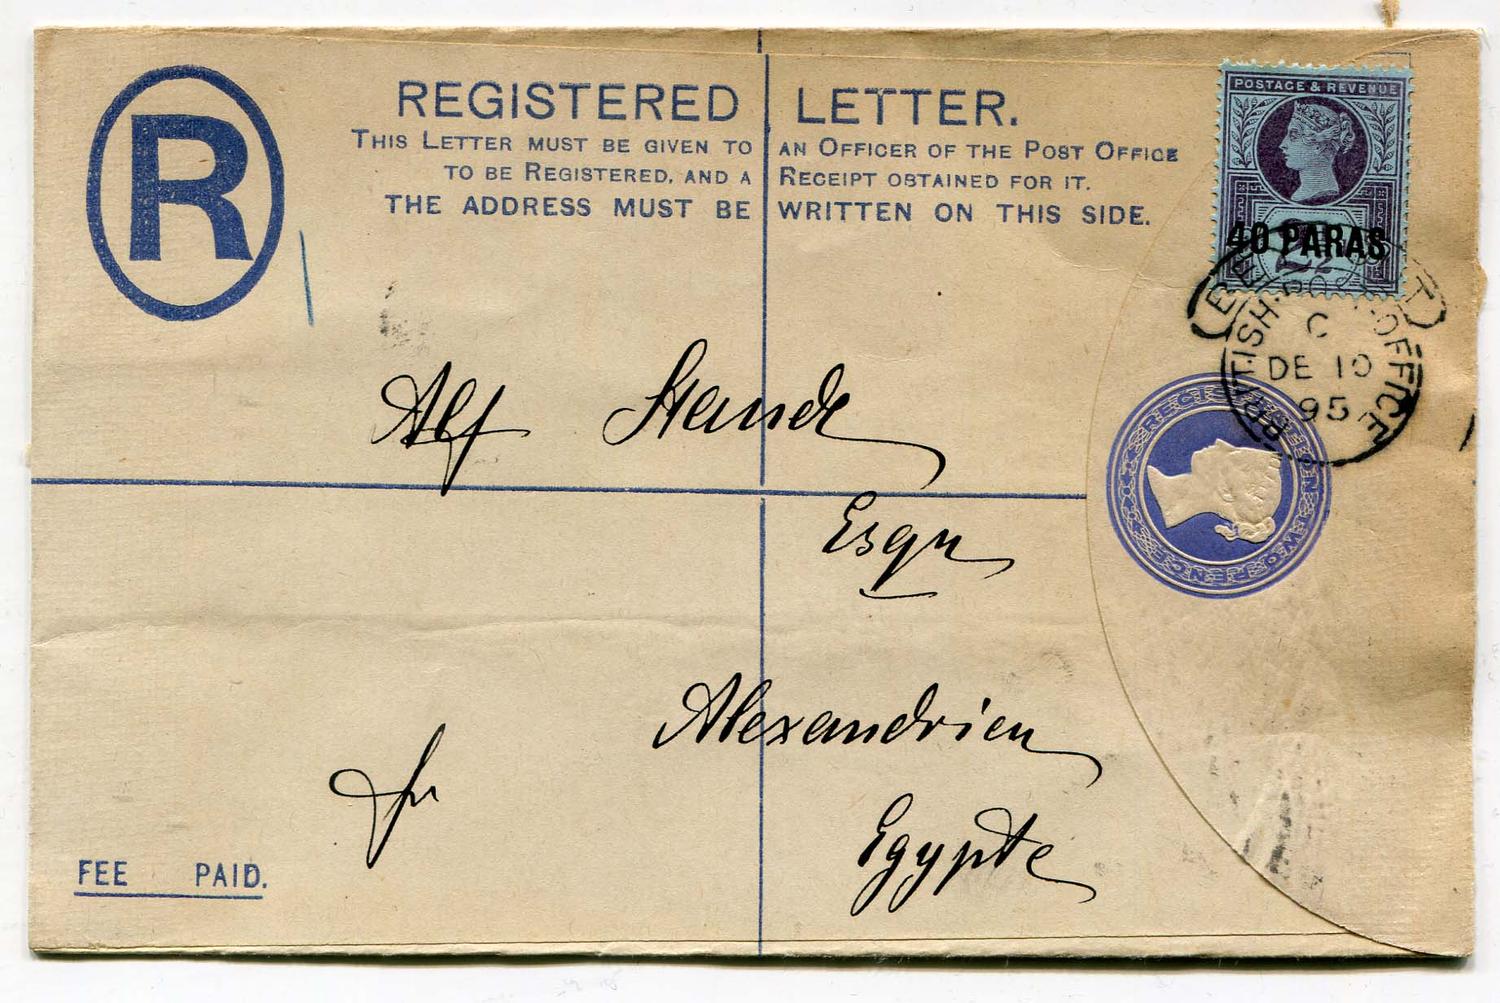 R
REGISTERED LETTER.
THIS LETTER MUST BE GIVEN TO AN OFFICER OF THE POST OFFICE
TO BE REGISTERED, AND A RECEIPT OBTAINED FOR IT.
THE ADDRESS MUST BE WRITTEN ON THIS SIDE.
POSTAGE & REVENUE
40 PARAS
2½
BRITISH POST OFFICE
C
DE 10
95
REGISTRATION TWO PENCE
Alf
Esqu
Alexandrien
Egypte
FEE PAID.